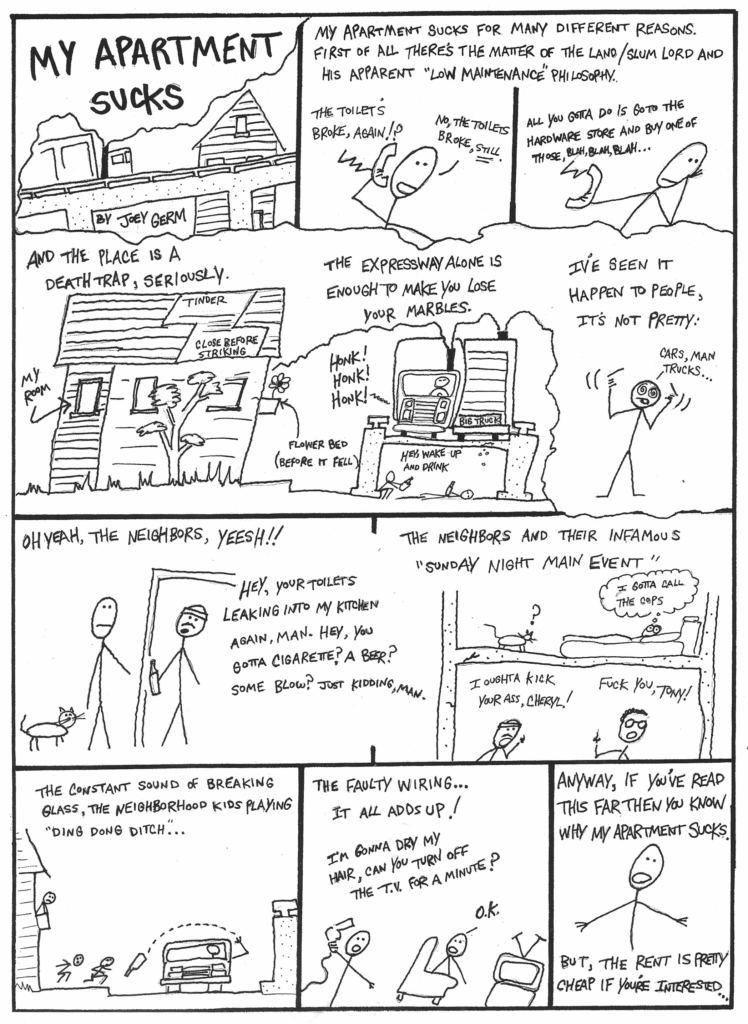 MY APARTMENT
SUCKS
BY JOEY GERM
MY APARTMENT SUCKS FOR MANY DIFFERENT REASONS.
FIRST OF ALL THERE'S THE MATTER OF THE LAND/SLUM LORD AND
HIS APPARENT "LOW MAINTENANCE" PHILOSOPHY.
THE TOILET'S
BROKE, AGAIN!?
NO, THE TOILETS
BROKE, STILL.
ALL YOU GOTTA DO IS GO TO THE
HARDWARE STORE AND BUY ONE OF
THOSE, BLAH, BLAH, BLAH...
AND THE PLACE IS A
DEATHTRAP, SERIOUSLY.
TINDER
CLOSE BEFORE
STRIKING
MY
ROOM
FLOWER BED
(BEFORE IT FELL)
THE EXPRESSWAY ALONE IS
ENOUGH TO MAKE YOU LOSE
YOUR MARBLES.
HONK!
HONK!
HONK!
BIG TRUCK
HEY, WAKE UP
AND DRINK
I'VE SEEN IT
HAPPEN TO PEOPLE,
IT'S NOT PRETTY:
CARS, MAN
TRUCKS...
OH YEAH, THE NEIGHBORS, YEESH!!
HEY, YOUR TOILETS
LEAKING INTO MY KITCHEN
AGAIN, MAN. HEY, YOU
GOTTA CIGARETTE? A BEER?
SOME BLOW? JUST KIDDING, MAN.
THE NEIGHBORS AND THEIR INFAMOUS
"SUNDAY NIGHT MAIN EVENT"
?
I GOTTA CALL
THE COPS
I OUGHTA KICK
YOUR ASS, CHERYL!
FUCK YOU, TONY!
THE CONSTANT SOUND OF BREAKING
GLASS, THE NEIGHBORHOOD KIDS PLAYING
"DING DONG DITCH"...
THE FAULTY WIRING...
IT ALL ADDS UP!
I'M GONNA DRY MY
HAIR, CAN YOU TURN OFF
THE T.V. FOR A MINUTE?
O.K.
ANYWAY, IF YOU'VE READ
THIS FAR THEN YOU KNOW
WHY MY APARTMENT SUCKS.
BUT, THE RENT IS PRETTY
CHEAP IF YOU'RE INTERESTED...